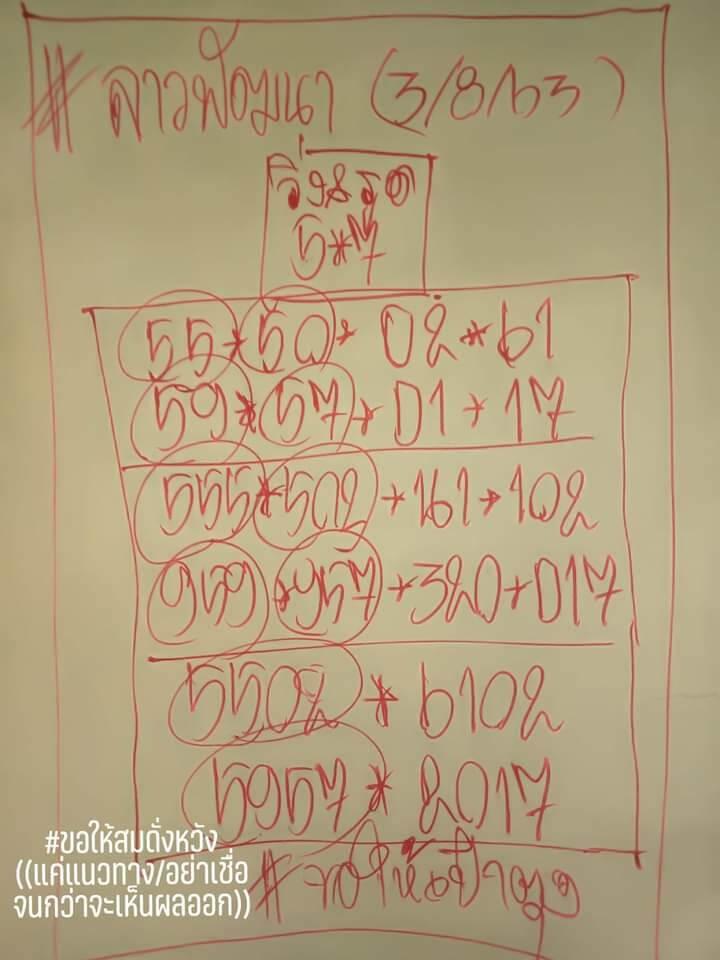 # ลาวพัฒนา (3/8/63)
วิ่งรูด
5*7
55*50* 02*61
59*57*01*17
555*502*161*102
959*957*320*017
5502*6102
5957*2017
#ขอให้สมดั่งหวัง
((แค่แนวทาง/อย่าเชื่อ
จนกว่าจะเห็นผลออก))